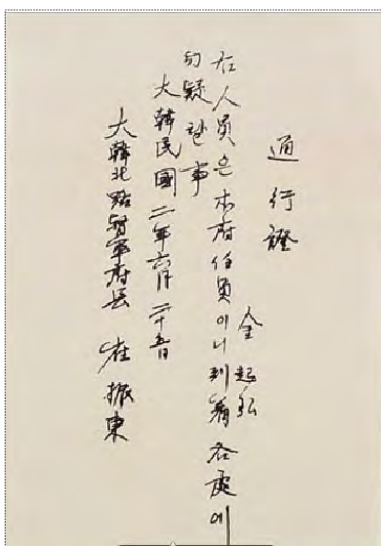 通行證
金起弘
右人員은本府任員이니到着各處에
勿疑할事
大韓民國二年六月二十五日
大韓北路督軍府長 崔振東